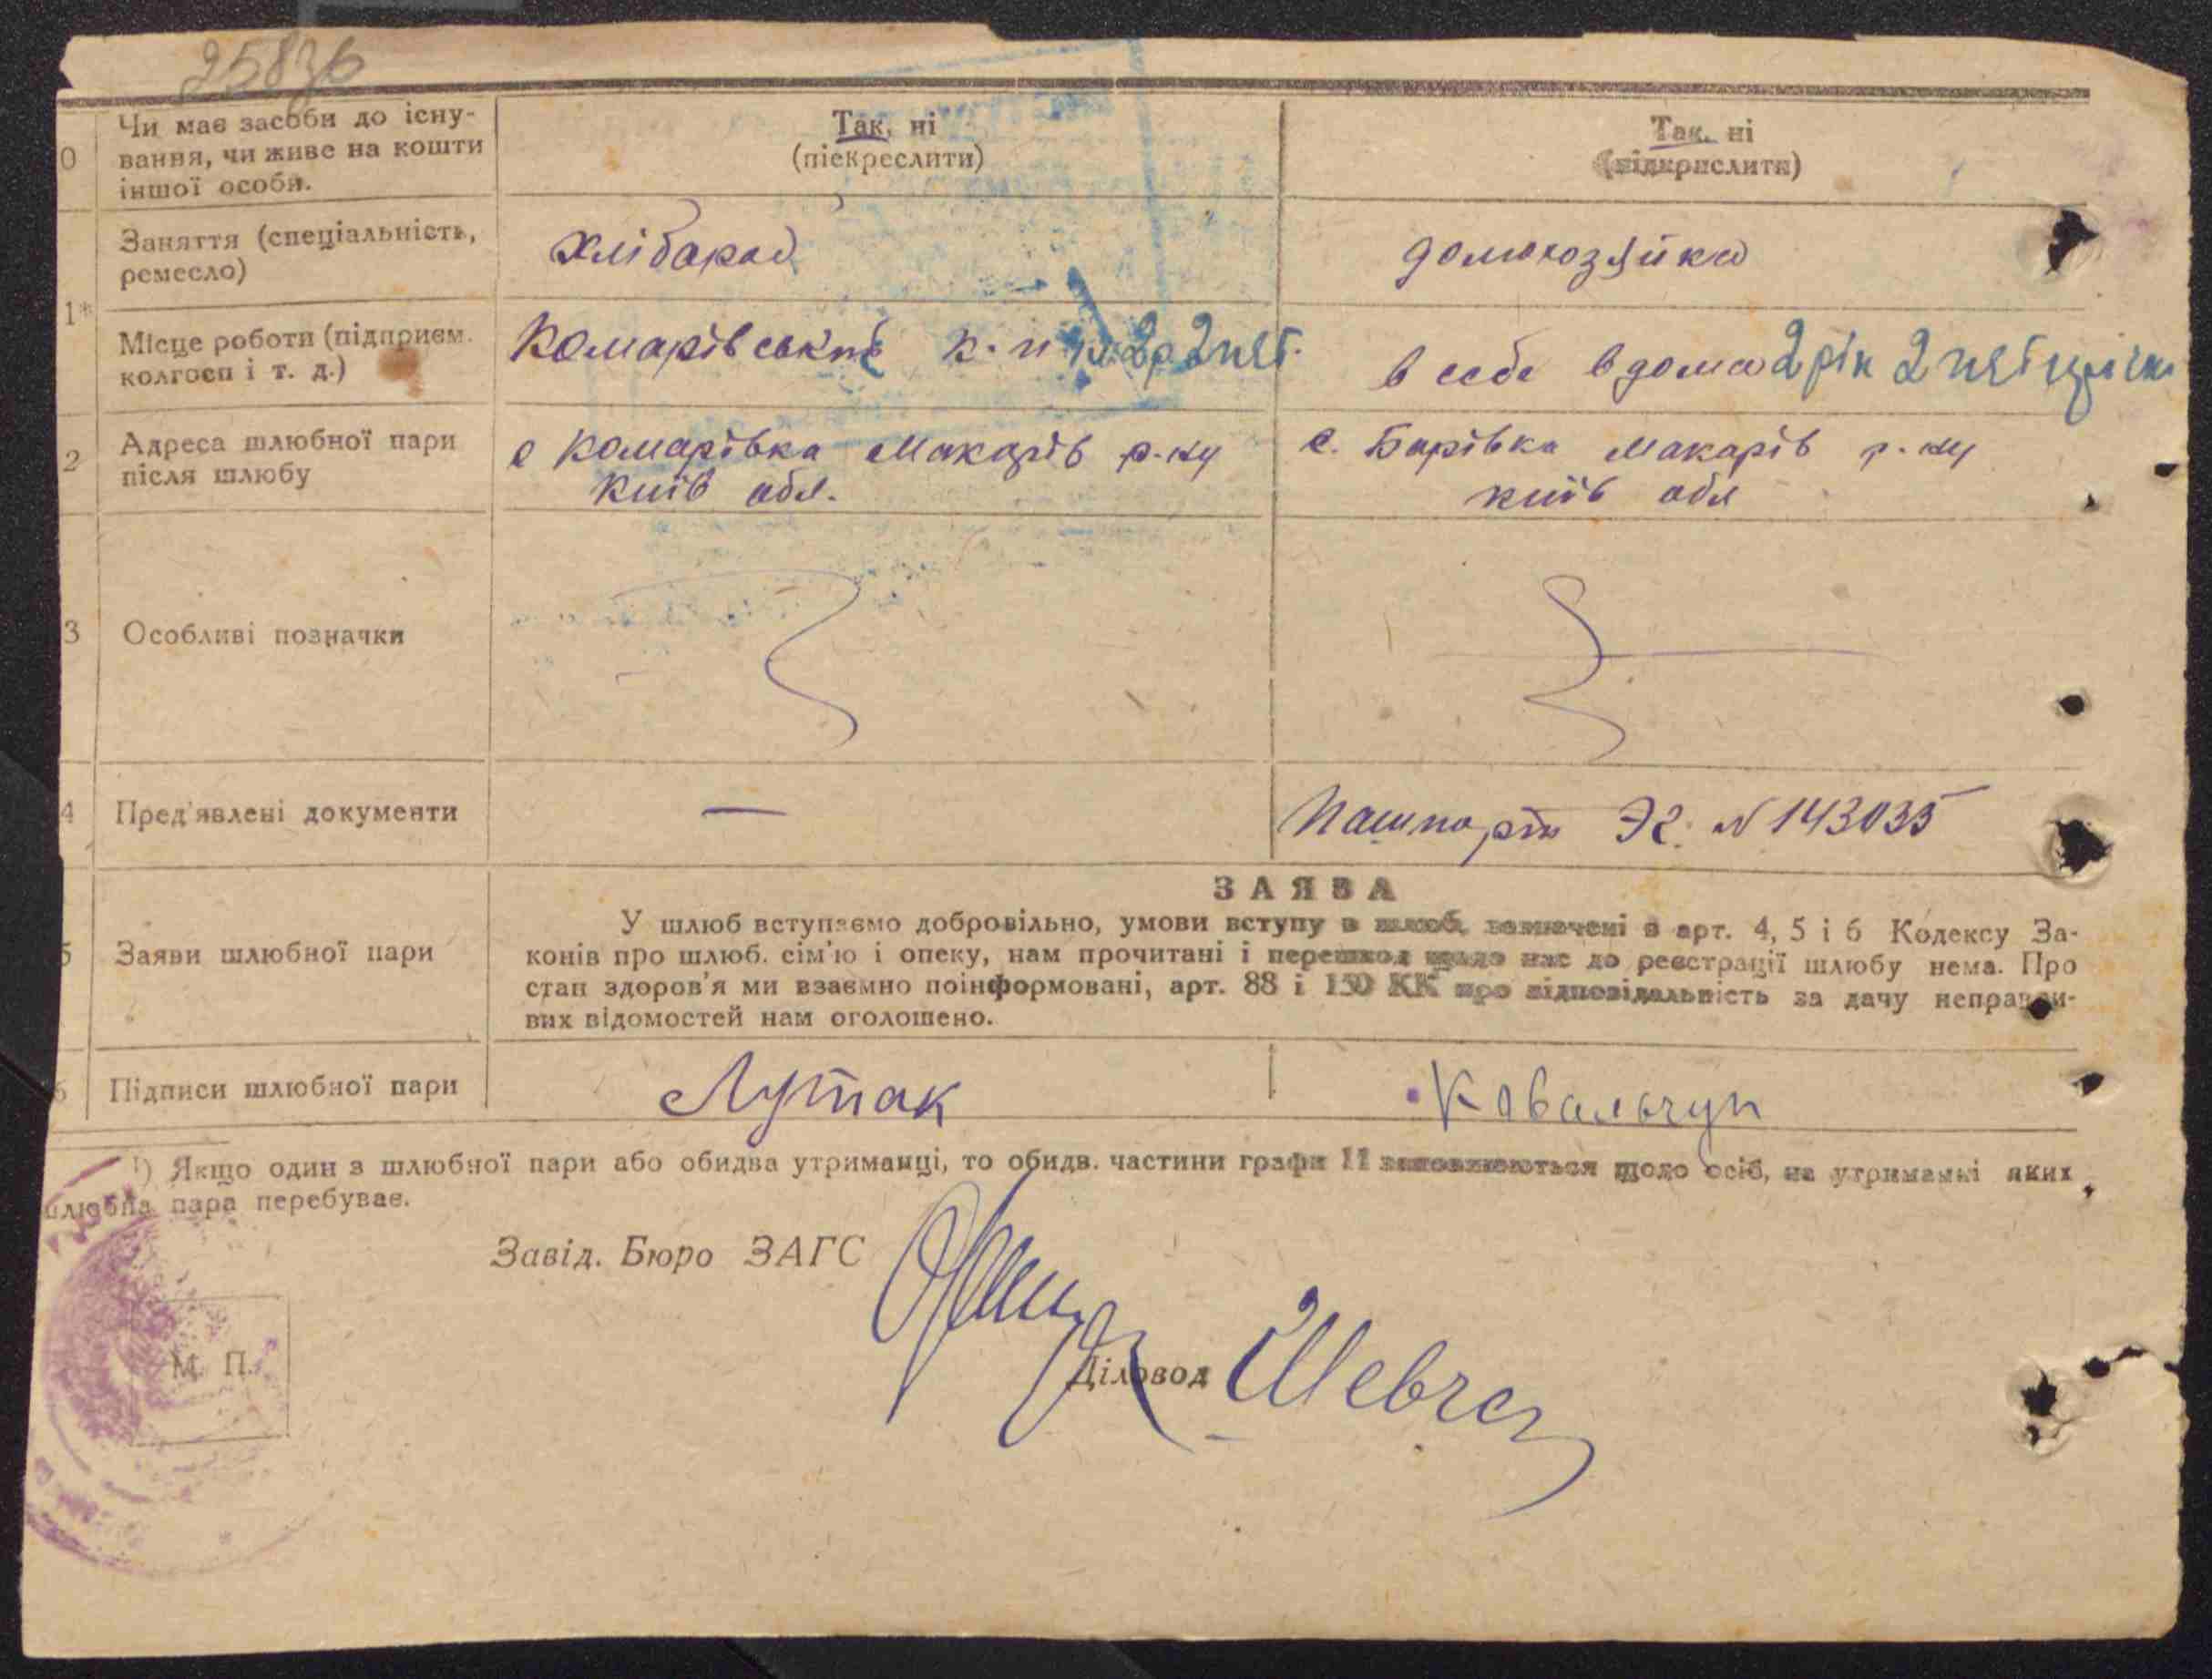 25836
0 Чи має засоби до існу-
вання, чи живе на кошти
іншої особи.
Так, ні
(піекреслити)
Так, ні
(підкрислити)
1* Заняття (спеціальність,
ремесло)
Хлібароб
домохозяйка
Місце роботи (підприєм.
колгосп і т. д.)
Комарівський к.
в себе вдома 2 рік 2
2 Адреса шлюбної пари
після шлюбу
с Комарівка Макарів р-ну
Київ обл.
с. Борівка Макарів р-ну
київ обл
3 Особливі позначки
4 Пред'явлені документи
—
Пашпорт ЭГ. N 143035
5 Заяви шлюбної пари
ЗАЯВА
У шлюб вступаємо добровільно, умови вступу в шлюб, зазначені в арт. 4, 5 і 6 Кодексу За-
конів про шлюб. сім'ю і опеку, нам прочитані і перешкод щодо нас до реєстрації шлюбу нема. Про
стан здоров'я ми взаємно поінформовані, арт. 88 і 150 КК про відповідальність за дачу неправди-
вих відомостей нам оголошено.
6 Підписи шлюбної пари
Лутак
Ковальчук
¹) Якщо один з шлюбної пари або обидва утриманці, то обидв. частини графи 11 заповнюються щодо осіб, на утриманні яких
шлюбна пара перебуває.
Завід. Бюро ЗАГС
М. П.
Діловод Шевчен